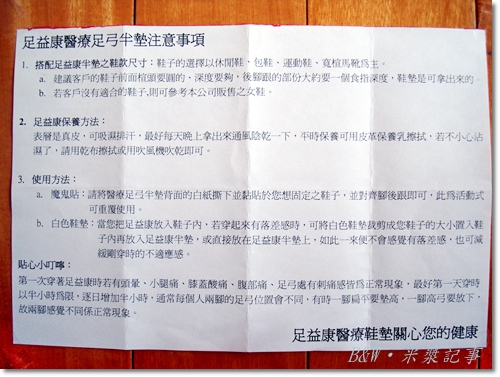 足益康醫療足弓半墊注意事項
1. 搭配足益康半墊之鞋款尺寸：鞋子的選擇以休閒鞋、包鞋、運動鞋、寬楦馬靴爲主。
a. 建議客戶的鞋子前面楦頭要圓的、深度要夠，後腳跟的部份大約要一個食指深度，鞋墊是可拿出來的。
b. 若客戶沒有適合的鞋子,則可參考本公司販售之女鞋。
2. 足益康保養方法：
表層是真皮，可吸濕排汗，最好每天晚上拿出來通風陰乾一下，平時保養可用皮革保養乳擦拭，若不小心沾
濕了，請用乾布擦拭或用吹風機吹乾即可。
3. 使用方法：
a. 魔鬼貼：請將醫療足弓半墊背面的白紙撕下並黏貼於您想固定之鞋子，並對齊腳後跟即可，此爲活動式
可重覆使用。
b. 白色鞋墊：當您把足益康放入鞋子內，若穿起來有落差感時，可將白色鞋墊裁剪成您鞋子的大小置入鞋
子內再放入足益康半墊，或直接放在足益康半墊上，如此一來便不會感覺有落差感，也可減
緩剛穿時的不適應感。
貼心小叮嚀：
第一次穿著足益康時若有頭暈、小腿痛、膝蓋酸痛、腹部痛、足弓處有刺痛感皆爲正常現象，最好第一天穿時
以半小時爲限，逐日增加半小時，通常每個人兩腳的足弓位置會不同，有時一腳扁平要墊高，一腳高弓要放下，
故兩腳感覺不同係正常現象。
足益康醫療鞋墊關心您的健康
B&W‧米漿記事